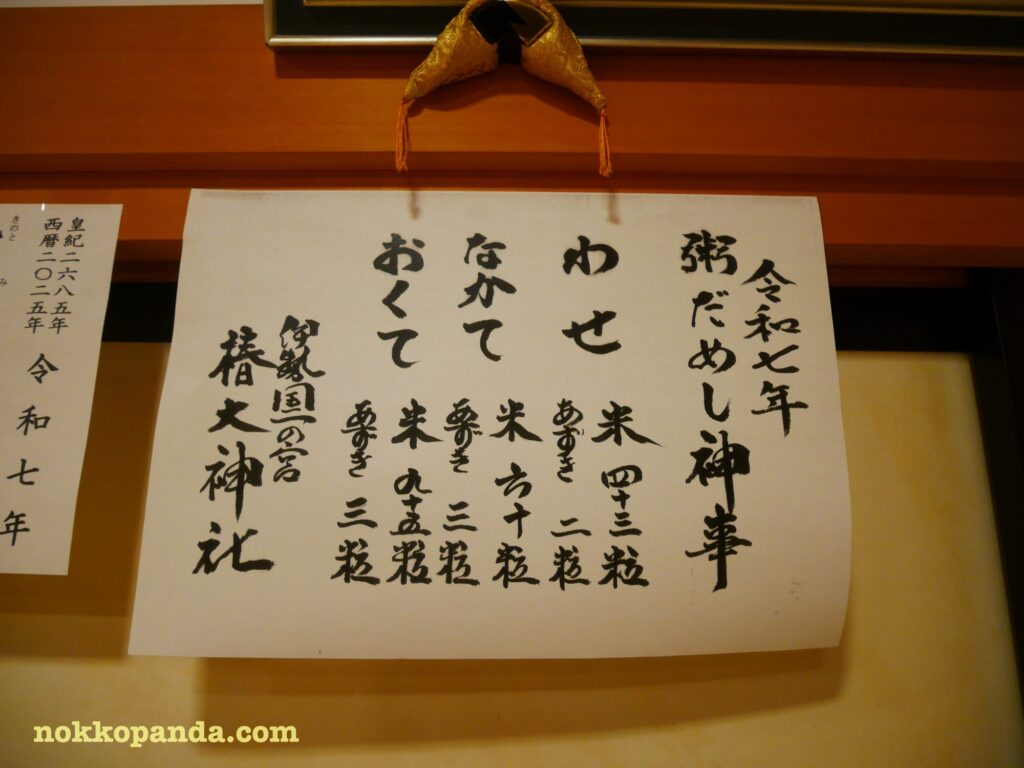 令和七年
粥だめし神事
わせ
米 四十三粒
あずき 二粒
なかて
米 六十粒
あずき 三粒
おくて
米 九十五粒
あずき 三粒
伊勢国一の宮
椿大神社
皇紀二六八五年
西暦二〇二五年
令和七年
きのと
み
nokkopanda.com